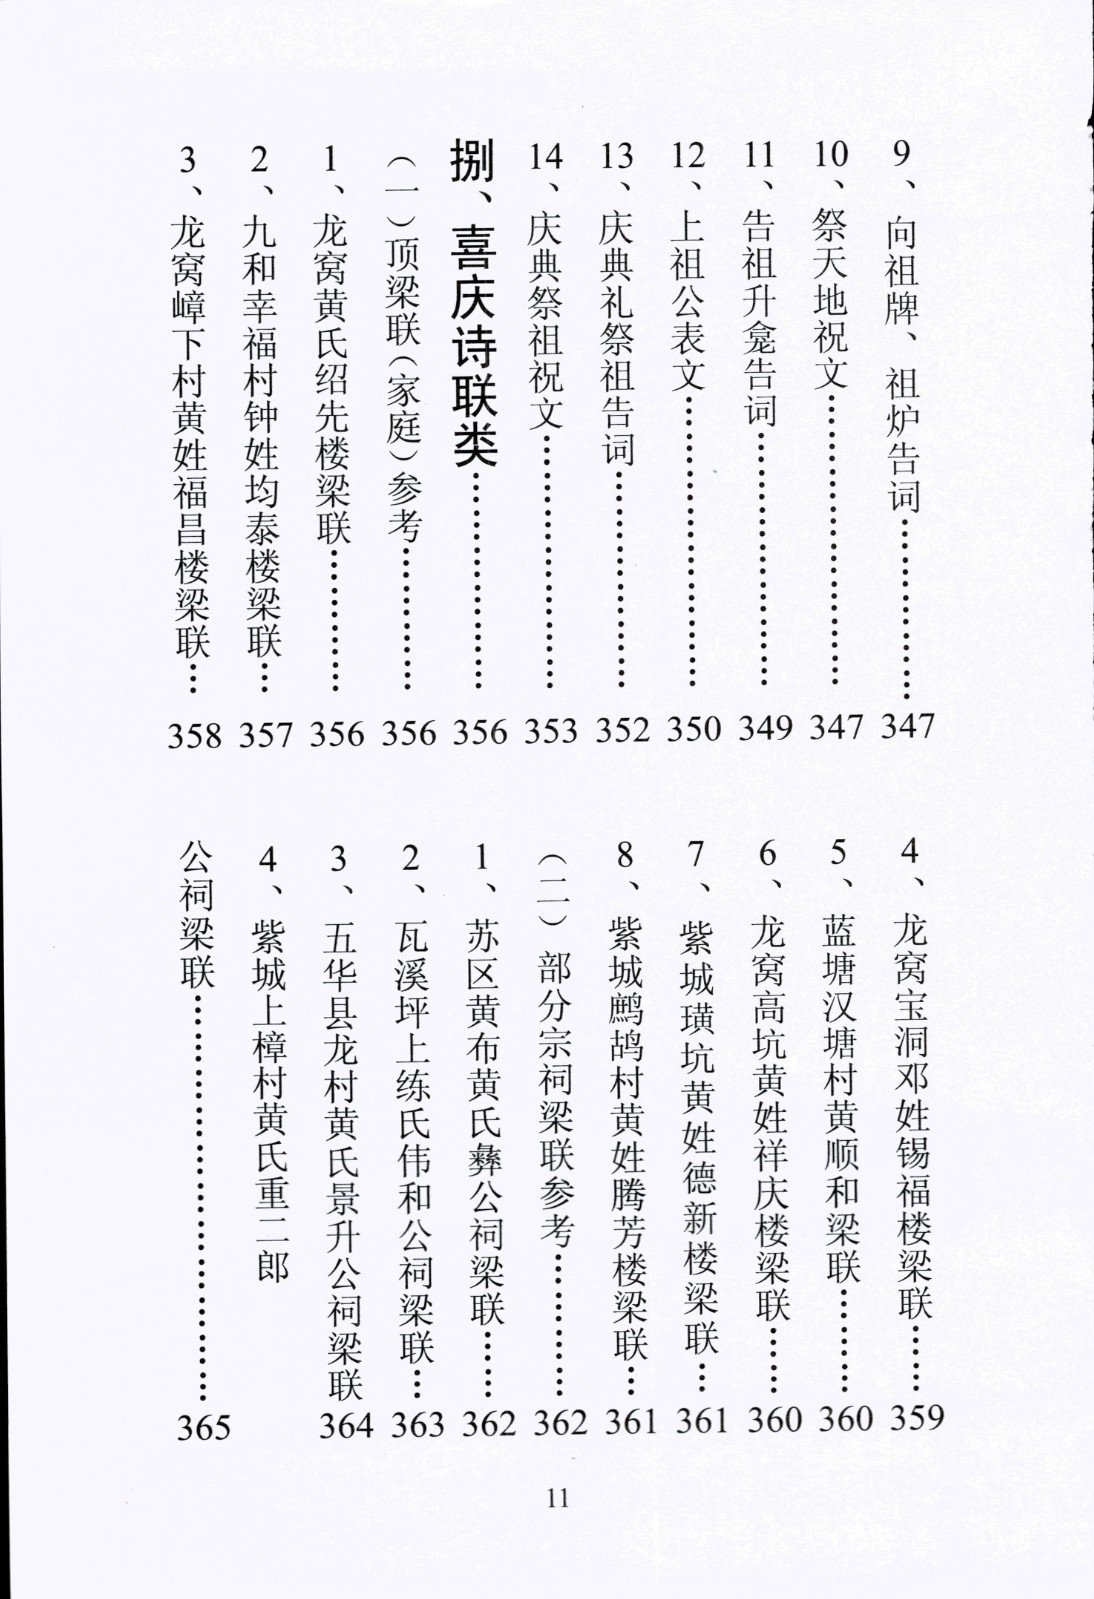 9、向祖牌、祖炉告词……………347
10、祭天地祝文……………………347
11、告祖升龛告词…………………349
12、上祖公表文……………………350
13、庆典礼祭祖告词………………352
14、庆典祭祖祝文…………………353
捌、喜庆诗联类……………………356
（一）顶梁联（家庭）参考………356
1、龙窝黄氏绍先楼梁联…………356
2、九和幸福村钟姓均泰楼梁联…357
3、龙窝嶂下村黄姓福昌楼梁联…358
4、龙窝宝洞邓姓锡福楼梁联……359
5、蓝塘汉塘村黄顺和梁联………360
6、龙窝高坑黄姓祥庆楼梁联……360
7、紫城璜坑黄姓德新楼梁联…361
8、紫城鹧鸪村黄姓腾芳楼梁联…361
（二）部分宗祠梁联参考…………362
1、苏区黄布黄氏彝公祠梁联……362
2、瓦溪坪上练氏伟和公祠梁联…363
3、五华县龙村黄氏景升公祠梁联364
4、紫城上樟村黄氏重二郎
公祠梁联……………………………365
11